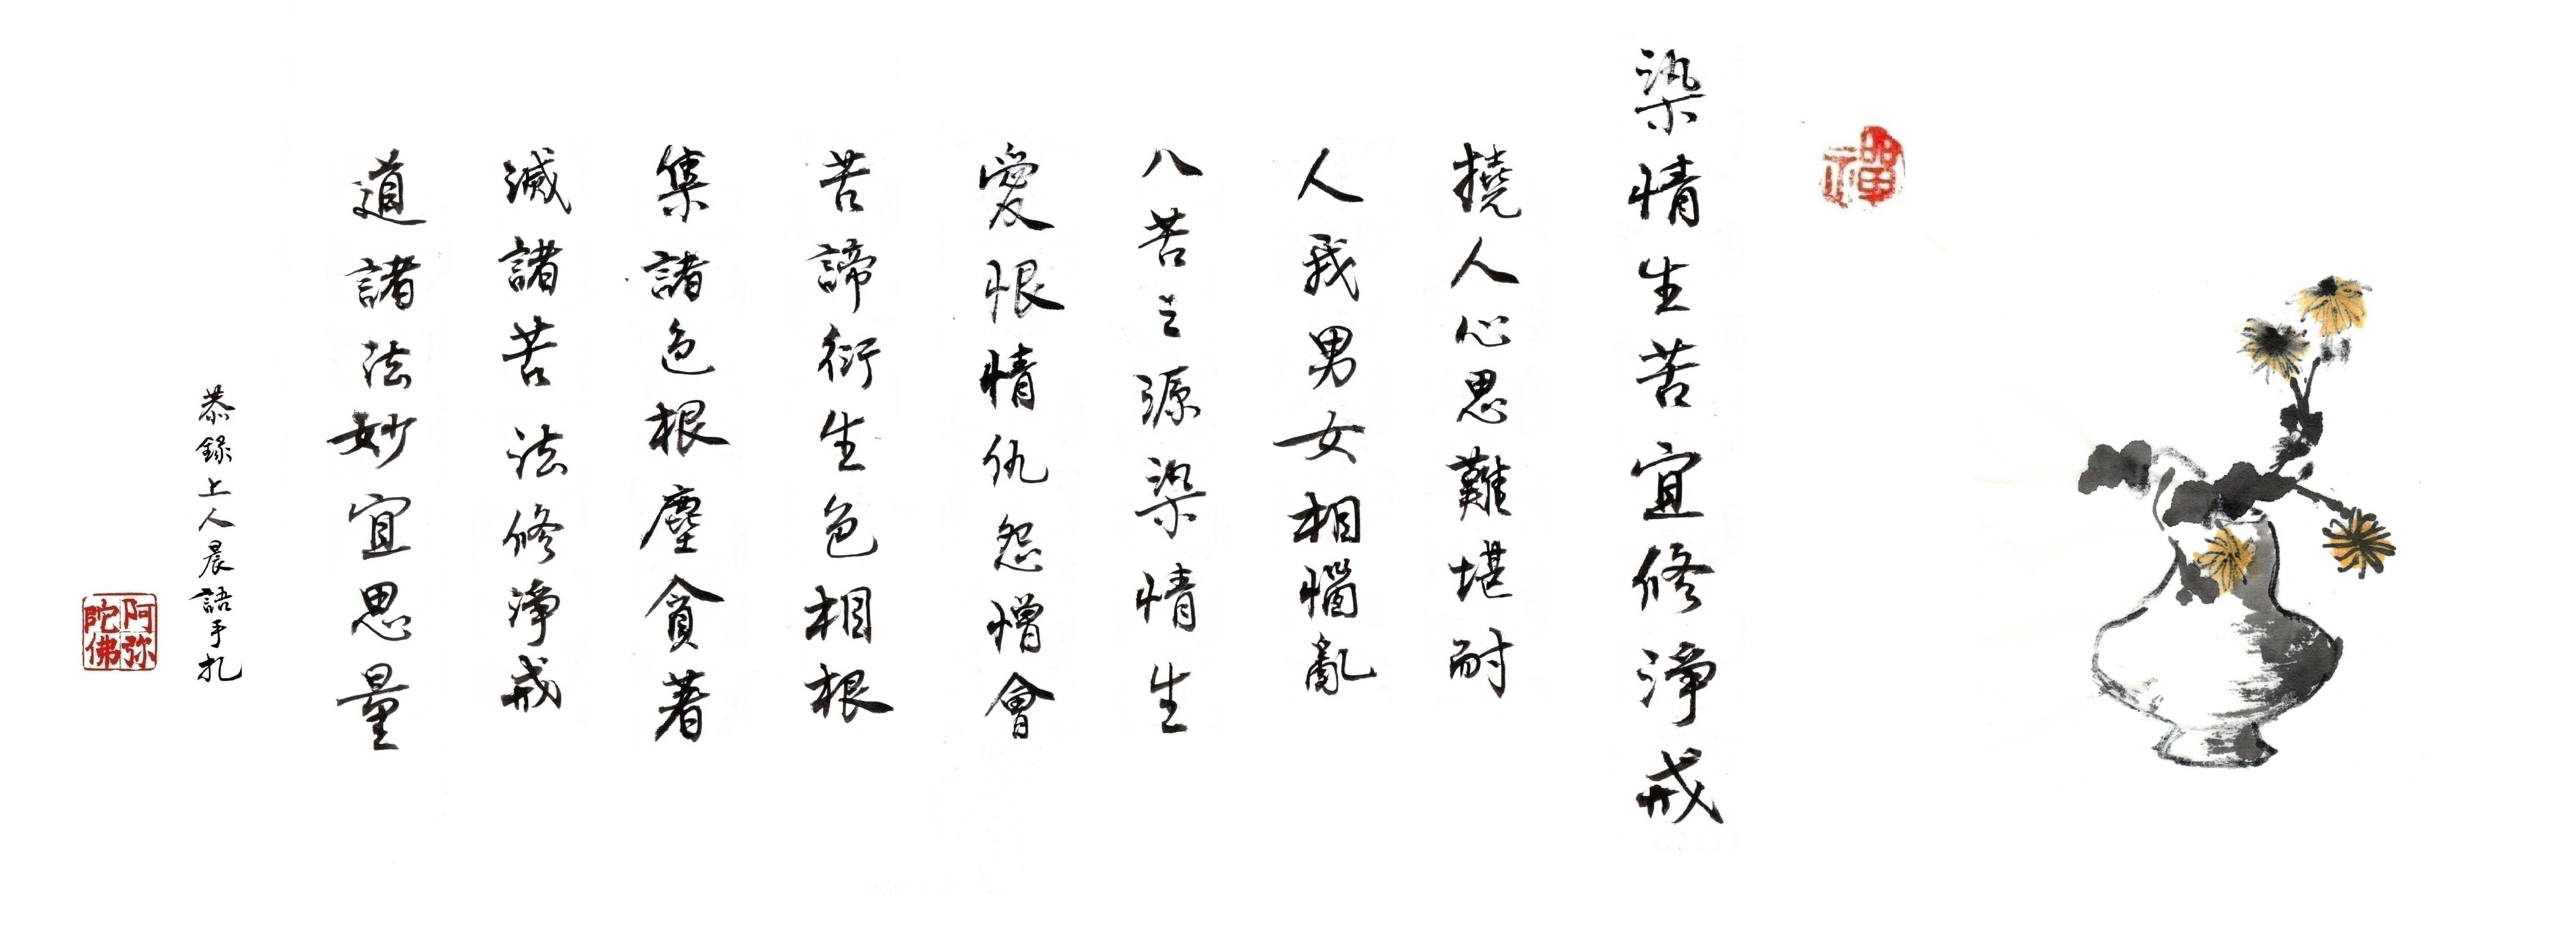 禪
染情生苦宜修淨戒
撓人心思難堪耐
人我男女相惱亂
八苦之源染情生
愛恨情仇怨憎會
苦諦衍生色相根
集諸色根塵貪著
滅諸苦法修淨戒
道諸法妙宜思量
恭錄上人晨語手札
阿弥陀佛